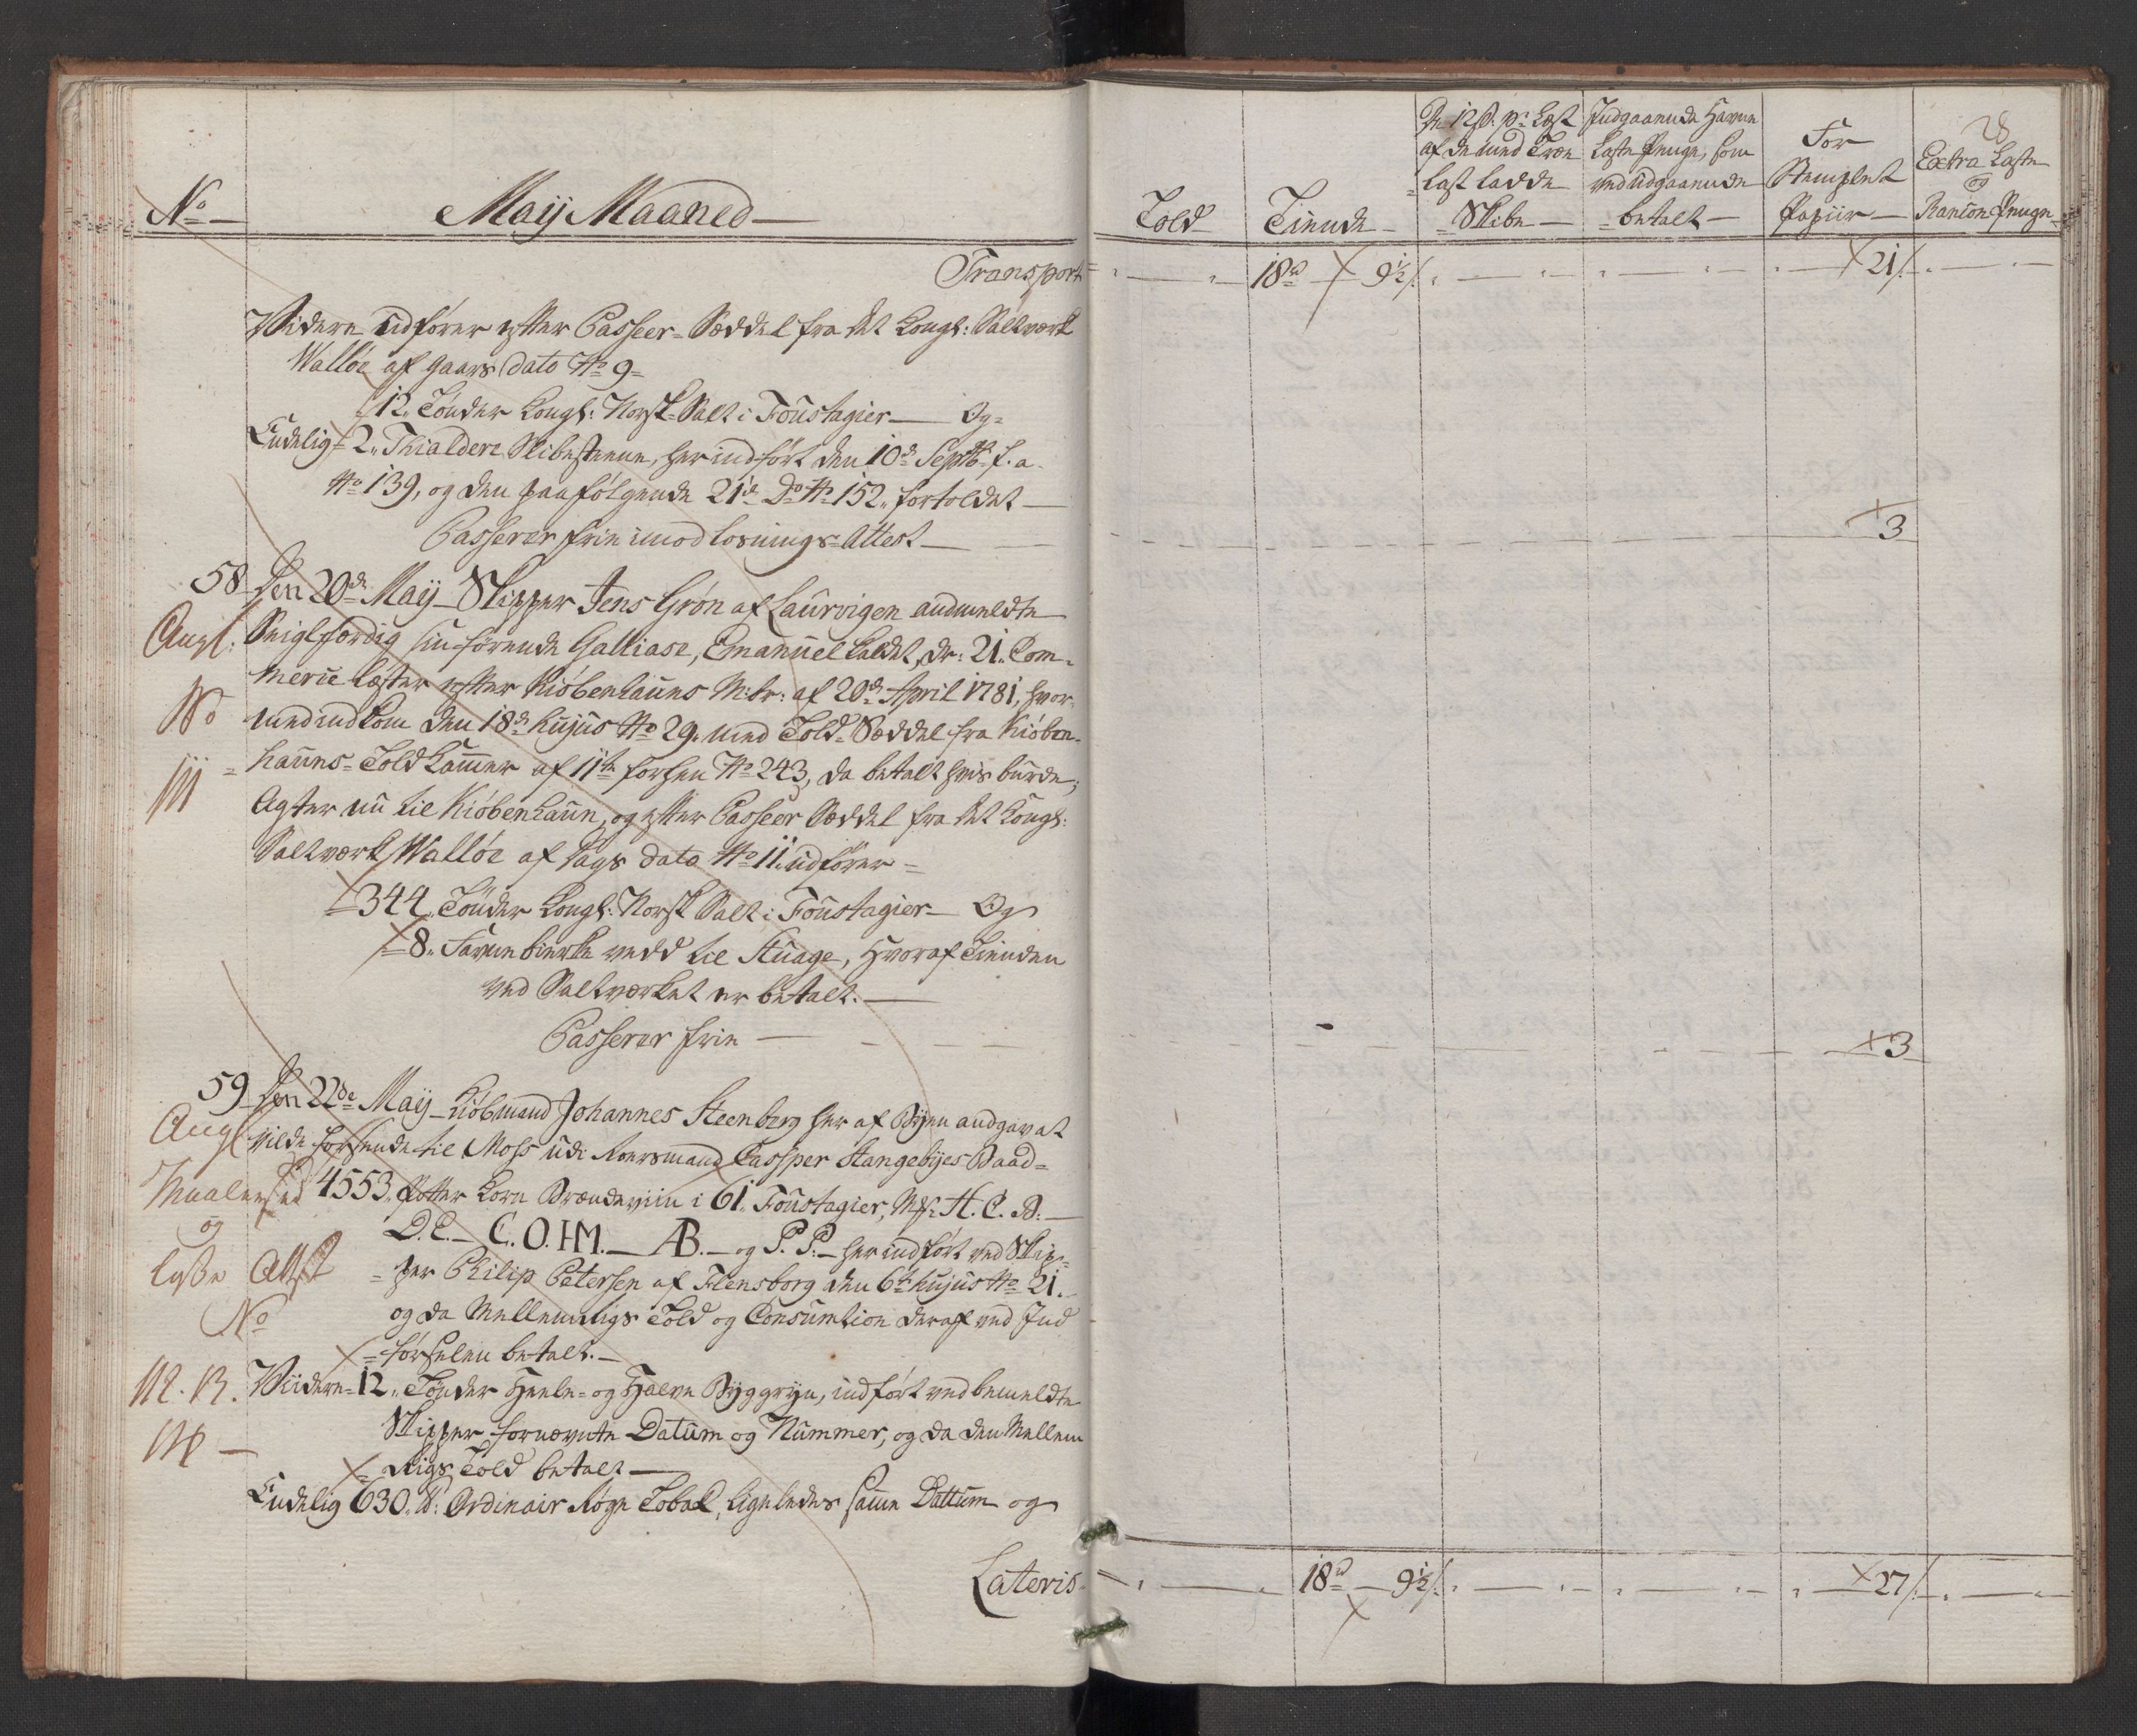 No
Maij Maaned
Transport
Videre udfører efter Passeer-Sæddel fra det Kongl: Saltværk
Walløe af gaars dato No 9
12. Tønder Kongl: Norsk Salt i Foustagier Og
Endelig 2. Thialdere Slibesteene, her indført den 10de Septbr f. a.
No 139, og den paafølgende 21de Do No 152. fortoldet
Passerer frie imod losnings-Attest
58 Den 20de Maij Skipper Jens Grøn af Laurvigen anmeldte
Angl: Seiglfærdig sin førende Galliase, Emanuel kaldet, dr: 21. Com-
No mercie læster efter Kiøbenhauns M:br: af 20de April 1781, hvor-
med indkom den 18de hujus No 29. med Told-Sæddel fra Kiøben-
111 hauns Told Kammer af 11te forhen No 243, da betalt hvis burde,
Agter nu til Kiøbenhaun, og efter Passeer Sæddel fra det Kongl:
Saltværk Walløe af Dags dato No 11. udfører
344. Tønder Kongl: Norsk Salt i Foustagier Og
8. Favne birke vedd til Stuage, hvoraf Tienden
ved Saltværket er betalt.
Passerer frie
59 Den 22de Maij Kiøbmand Johannes Steenberg her af Byen angav at
Angl vilde forsende til Moss udi Roersmand Casper Stangebyes Baad
4553. Potter Korn Brændeviin i 61. Foustagier, Mk: H. C. B.
og D. C. C. O. HM. AB. og P. P. her indført ved Skip-
Attest per Philip Petersen af Flensborg den 6te hujus No 21.
No og da Mellemrigs Told og Consumtion deraf ved Ind
førselen betalt.
112. 13. Viidere 12. Tønder Heele- og Halve Byggryn, indført ved bemeldte
Skipper fornævnte Datum og Nummer, og da den Mellem
114 Rigs Told betalt
Endelig 630. lb: Ordinair Røge Tobak, ligeledes samme Dattum og
Lateris
Told
Tiende
De 12 s. pr Læst
af de med Træe
last ladde
Skibe
Indgaaende Havne
Laste Penge, som
ved udgaaende
betalt
For
Stemplet
Papiir
Extra Laste
og
Ranson Penge
18 rd 9½ s.
21 s.
3
3
18 rd 9½ s.
27 s.